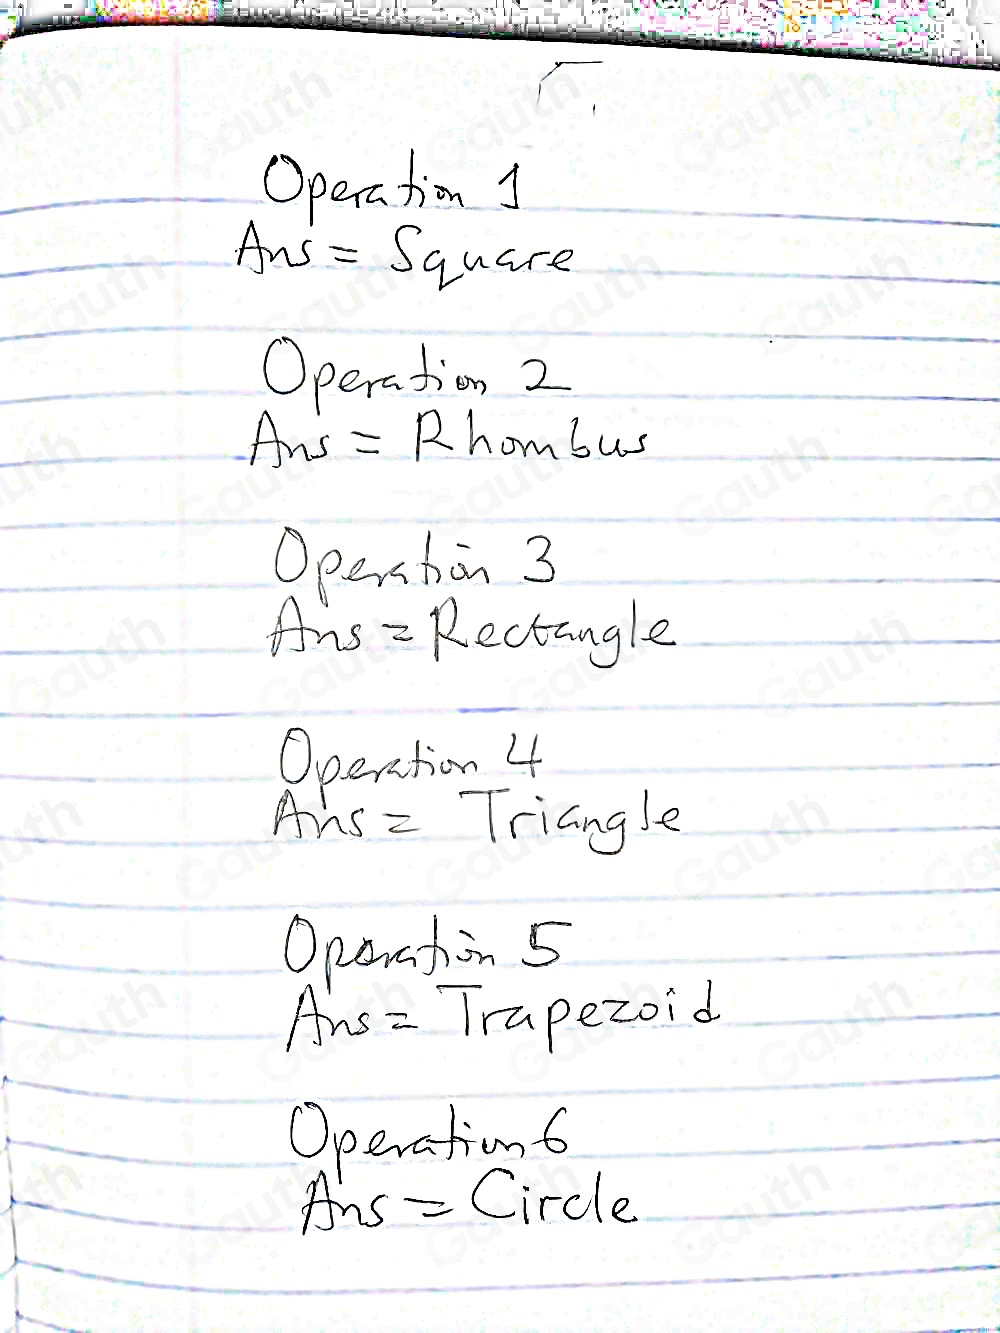 Operation 1
Ans = Square
Operation 2
Ans = Rhombus
Operation 3
Ans = Rectangle
Operation 4
Ans = Triangle
Operation 5
Ans = Trapezoid
Operation 6
Ans = Circle